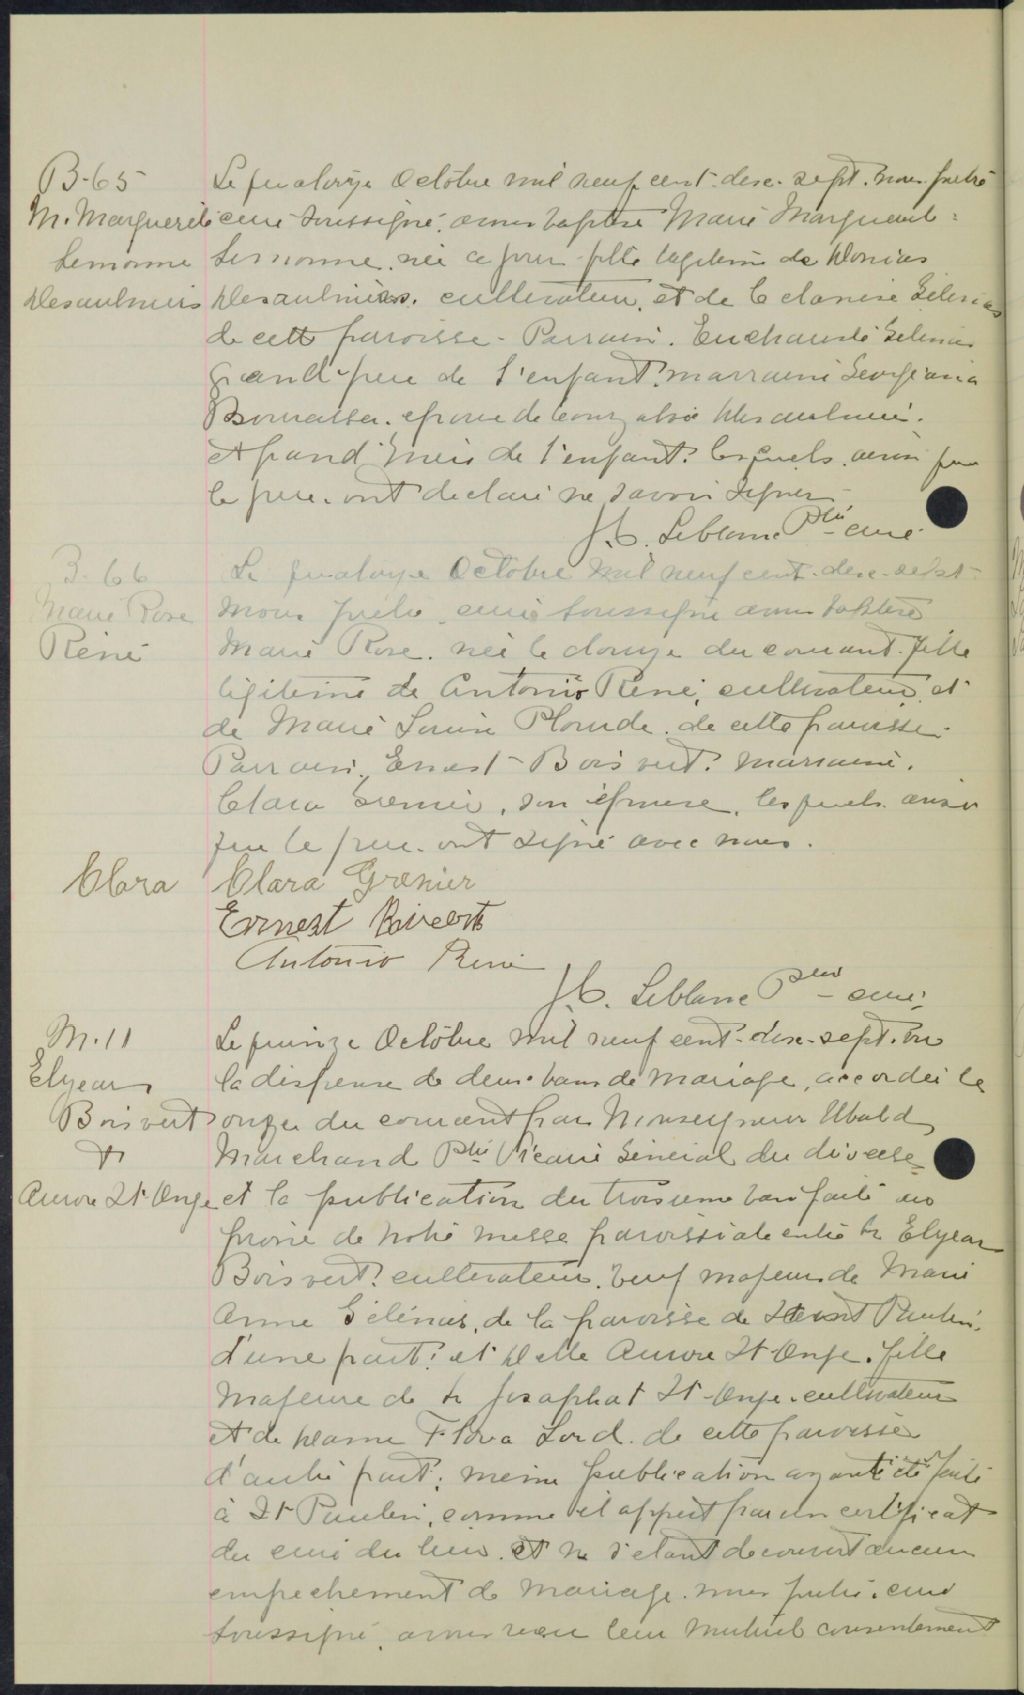 B-65
M. Marguerite
Lemonne
Desaulniers
Le quatorze Octobre mil neuf cent-dix-sept. nous prêtre
curé soussigné. avons baptisé Marie Marguerite
née ce jour fille légitime de Donias
Desaulniers. cultivateur, et de Clarisse Gélinas
de cette paroisse - Parrain. Gélinas
grand-père de l'enfant. marraine Georgiana
Bournassa. épouse de Desaulniers.
et grand'mère de l'enfant. lesquels. ainsi que
le père. ont déclaré ne savoir signer
J.C. Leblanc Ptre curé
B. 66
Marie Rose
René
Le quatorze Octobre mil neuf cent-dix-sept-
nous prêtre curé soussigné avons baptisé
Marie Rose. née le douze du courant. fille
légitime de Antonio René, cultivateur, et
de Marie Louise Plourde. de cette paroisse.
Parrain. Ernest Boisvert. marraine.
Clara Grenier, son épouse, lesquels. ainsi
que le père. ont signé avec nous.
Clara Clara Grenier
Ernest
Antonio René
J.C. Leblanc Ptre - curé
M. 11
Elzear
Boisvert
&
Aurore St Onge
Le quinze Octobre mil neuf cent-dix-sept. vu
la dispense de deux bans de mariage, accordée le
onze du courant par Monseigneur Ubald
Marchand Ptre Vicaire Général du diocèse
et la publication du troisième ban faite au
prône de notre messe paroissiale entre Sr Elzear
Boisvert. cultivateur. veuf majeur de Marie
Anne Gélinas, de la paroisse de Saint Paulin.
d'une part: et Delle Aurore St-Onge. fille
majeure de Sr Josaphat St-Onge. cultivateur
et de Dame Flora Lord. de cette paroisse
d'autre part; même publication ayant été faite
à St Paulin, comme il appert par un certificat
du curé du lieu. et ne s'étant découvert aucun
empêchement de mariage. nous prêtre. curé
soussigné, avons reçu leur mutuel consentement